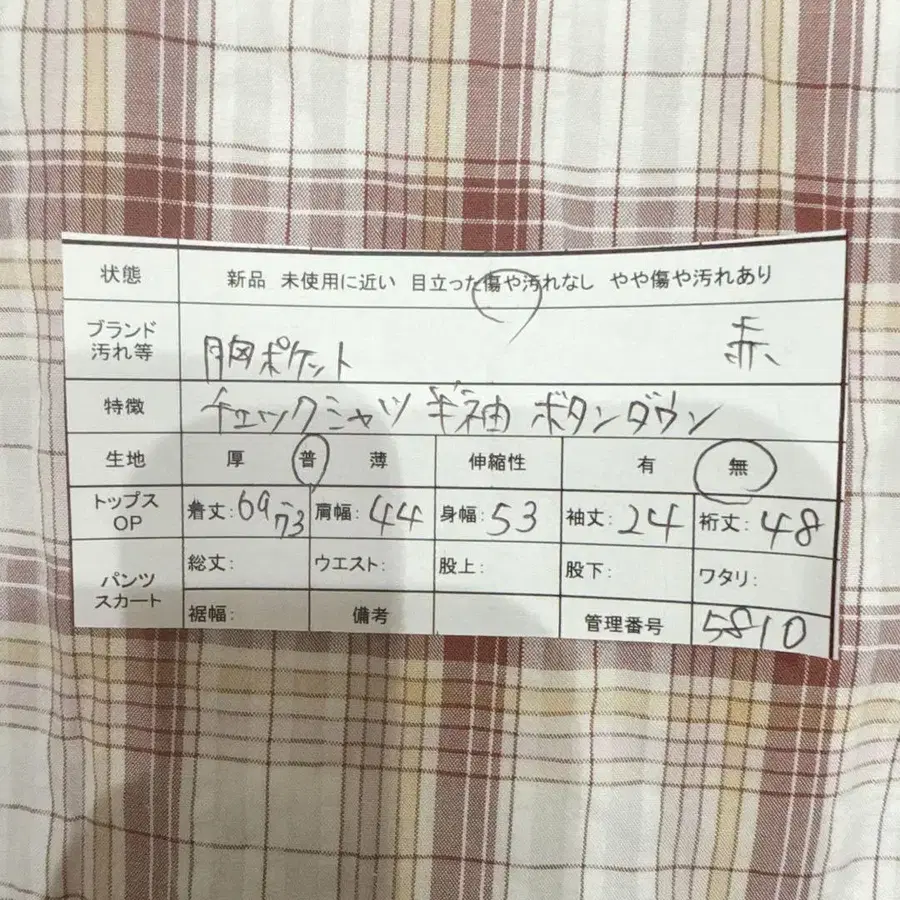 状態 新品 未使用に近い 目立った傷や汚れなし やや傷や汚れあり
ブランド 汚れ等 胸ポケット 赤
特徴 チェックシャツ 半袖 ボタンダウン
生地 厚 普 薄 伸縮性 有 無
トップス OP 着丈:69 73 肩幅:44 身幅:53 袖丈:24 裄丈:48
パンツ スカート 総丈: ウエスト: 股上: 股下: ワタリ:
裾幅: 備考 管理番号 5810